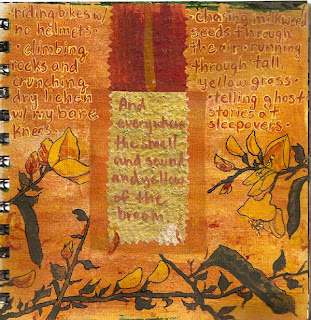 ·riding bikes w/
no helmets·
·climbing
rocks and
crunching
dry lichen
w/ my bare
knees·
·Chasing milkweed
seeds through
the air·running
through tall,
yellow grass·
·telling ghost
stories at
sleepovers·
And
everywhere
the smell
and sound
and yellow
of the
broom.